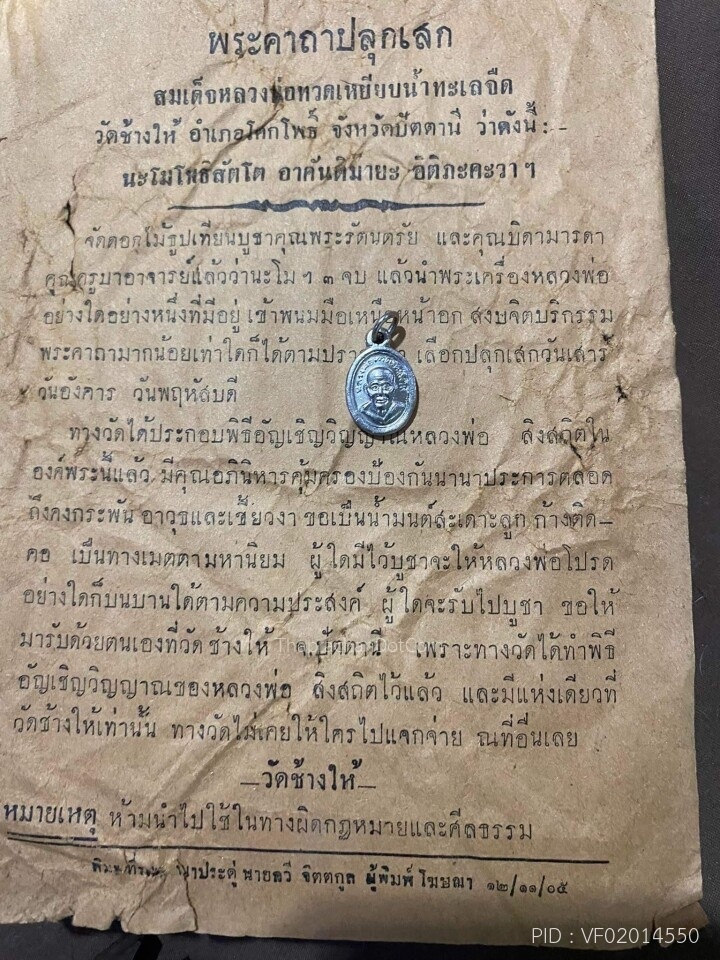 พระคาถาปลุกเสก
สมเด็จหลวงพ่อทวดเหยียบน้ำทะเลจืด
วัดช้างให้ อำเภอโคกโพธิ์ จังหวัดปัตตานี ว่าดังนี้ : -
นะโมโพธิสัตโต อาคันติมายะ อิติภะคะวา ฯ
จัดดอกไม้ธูปเทียนบูชาคุณพระรัตนตรัย และคุณบิดามารดา
คุณครูบาอาจารย์แล้วว่านะโม ฯ ๓ จบ แล้วนำพระเครื่องหลวงพ่อ
อย่างใดอย่างหนึ่งที่มีอยู่ เข้าพนมมือเหนือหน้าอก สงบจิตบริกรรม
พระคาถามากน้อยเท่าใดก็ได้ตาม เลือกปลุกเสกวันเสาร์
วันอังคาร วันพฤหัสบดี
ทางวัดได้ประกอบพิธีอัญเชิญวิญญาณหลวงพ่อ สิงสถิตใน
องค์พระนี้แล้ว มีคุณอภินิหารคุ้มครองป้องกันนานาประการตลอด
ถึงคงกระพัน อาวุธและเขี้ยวงา ขอเป็นน้ำมนต์สะเดาะลูก ก้างติด-
คอ เป็นทางเมตตามหานิยม ผู้ใดมีไว้บูชาจะให้หลวงพ่อโปรด
อย่างใดก็บนบานได้ตามความประสงค์ ผู้ใดจะรับไปบูชา ขอให้
มารับด้วยตนเองที่วัดช้างให้ จ.ปัตตานี เพราะทางวัดได้ทำพิธี
อัญเชิญวิญญาณของหลวงพ่อ สิงสถิตไว้แล้ว และมีแห่งเดียวที่
วัดช้างให้เท่านั้น ทางวัดไม่เคยให้ใครไปแจกจ่าย ณที่อื่นเลย
—วัดช้างให้—
หมายเหตุ ห้ามนำไปใช้ในทางผิดกฎหมายและศีลธรรม
นาประดู่ นายลวี จิตตกูล ผู้พิมพ์โฆษณา ๑๒/๑๑/๐๕
PID : VF02014550